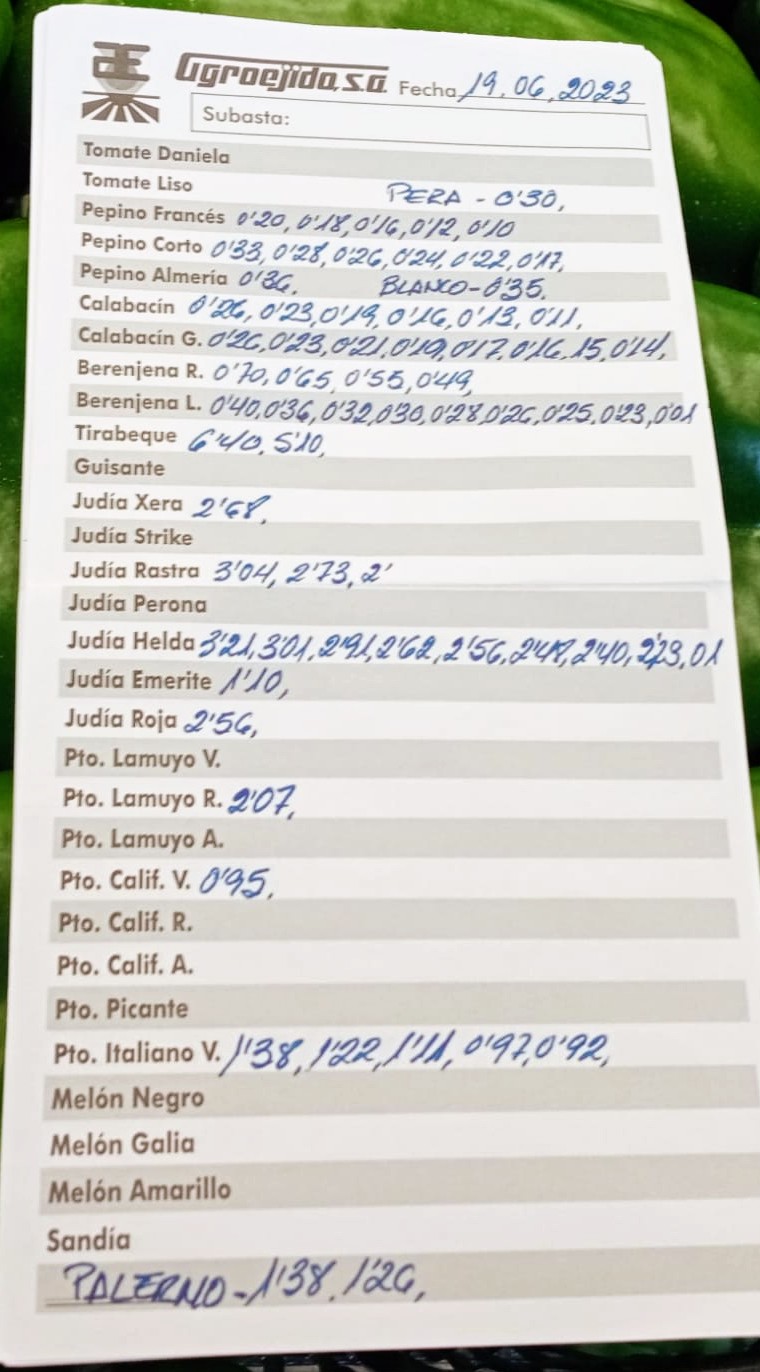 Agroejido, s.a. Fecha 19.06.2023
Subasta:
Tomate Daniela
Tomate Liso PERA - 0'30,
Pepino Francés 0'20, 0'18, 0'16, 0'12, 0'10
Pepino Corto 0'33, 0'28, 0'26, 0'24, 0'22, 0'17,
Pepino Almería 0'36. BLANCO - 0'35.
Calabacín 0'26, 0'23, 0'19, 0'16, 0'13, 0'11,
Calabacín G. 0'26, 0'23, 0'21, 0'19, 0'17, 0'16, 15, 0'14,
Berenjena R. 0'70, 0'65, 0'55, 0'49,
Berenjena L. 0'40, 0'36, 0'32, 0'30, 0'28, 0'26, 0'25, 0'23, 0'01
Tirabeque 6'40, 5'10,
Guisante
Judía Xera 2'68,
Judía Strike
Judía Rastra 3'04, 2'73, 2'
Judía Perona
Judía Helda 3'21, 3'01, 2'91, 2'62, 2'56, 2'48, 2'40, 2'23, 01
Judía Emerite 1'10,
Judía Roja 2'56,
Pto. Lamuyo V.
Pto. Lamuyo R. 2'07,
Pto. Lamuyo A.
Pto. Calif. V. 0'95,
Pto. Calif. R.
Pto. Calif. A.
Pto. Picante
Pto. Italiano V. 1'38, 1'22, 1'11, 0'97, 0'92,
Melón Negro
Melón Galia
Melón Amarillo
Sandía
PALERNO - 1'38, 1'26,